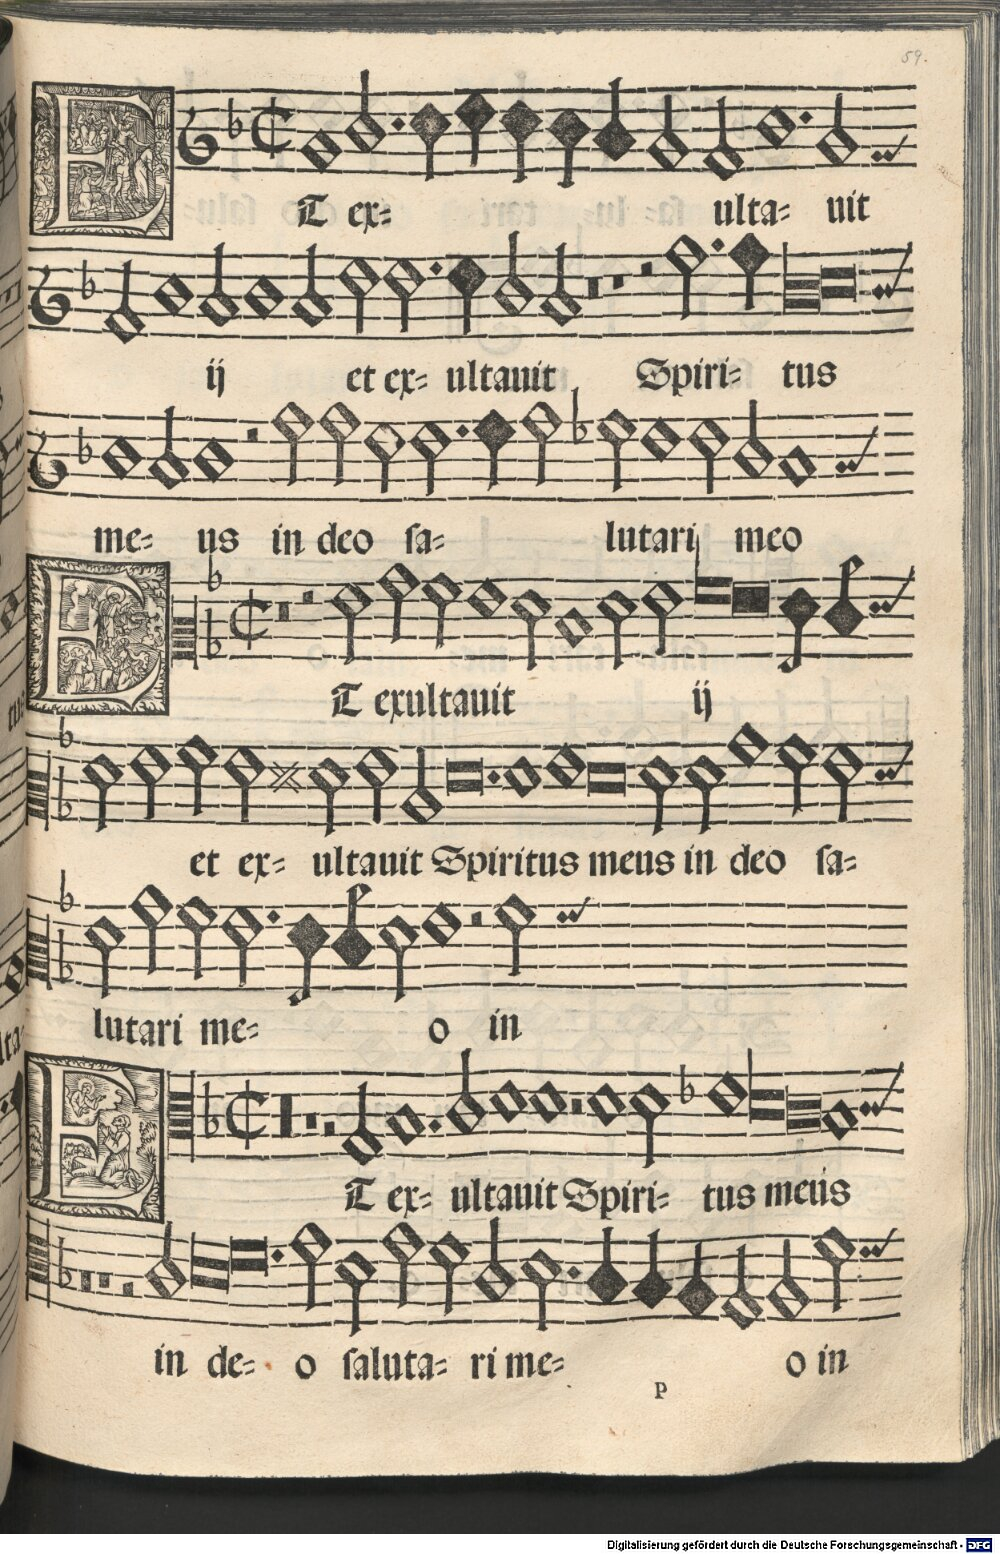 59.
ET ex= ulta= uit
ij et ex= ultauit Spiri= tus
me= us in deo sa= lutari meo
ET exultauit ij
et ex= ultauit Spiritus meus in deo sa=
lutari me= o in
ET ex= ultauit Spiri= tus meus
in de= o saluta= ri me= o in
p
Digitalisierung gefördert durch die Deutsche Forschungsgemeinschaft - DFG